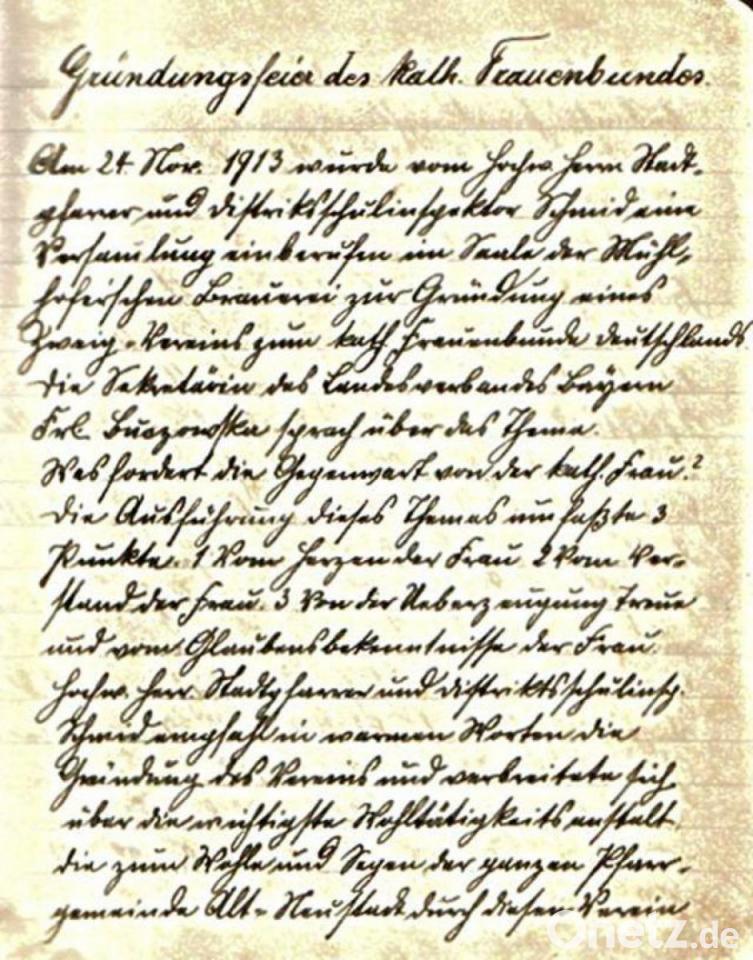 Gründungsfeier des kath. Frauenbundes.
Am 24. Nov. 1913 wurde vom hochw. Herrn Stadt-
pfarrer und Distriksschulinspektor Schmid eine
Versamlung einberufen im Saale der Mühl-
hofer'schen Brauerei zur Gründung eines
Zweig-Vereins zum kath. Frauenbunde Deutschlands
Die Sekretärin des Landesverbandes Bayern
Frl. Buczowska sprach über das Thema.
Was fordert die Gegenwart von der kath. Frau?
Die Ausführung dieses Themas umfaßte 3
Punkte. 1 Vom Herzen der Frau 2 Vom Ver-
stand der Frau. 3 Von der Ueberzeugung Treue
und vom Glaubensbekenntnisse der Frau.
Hochw. Herr Stadtpfarrer und Distriktsschulinsp.
Schmid empfahl in warmen Worten die
Gründung des Vereins und verbreitete sich
über die wichtigste Wohltätigkeitsanstalt
die zum Wohle und Segen der ganzen Pfarr-
gemeinde Alt-Neustadt durch diesen Verein
Onetz.de